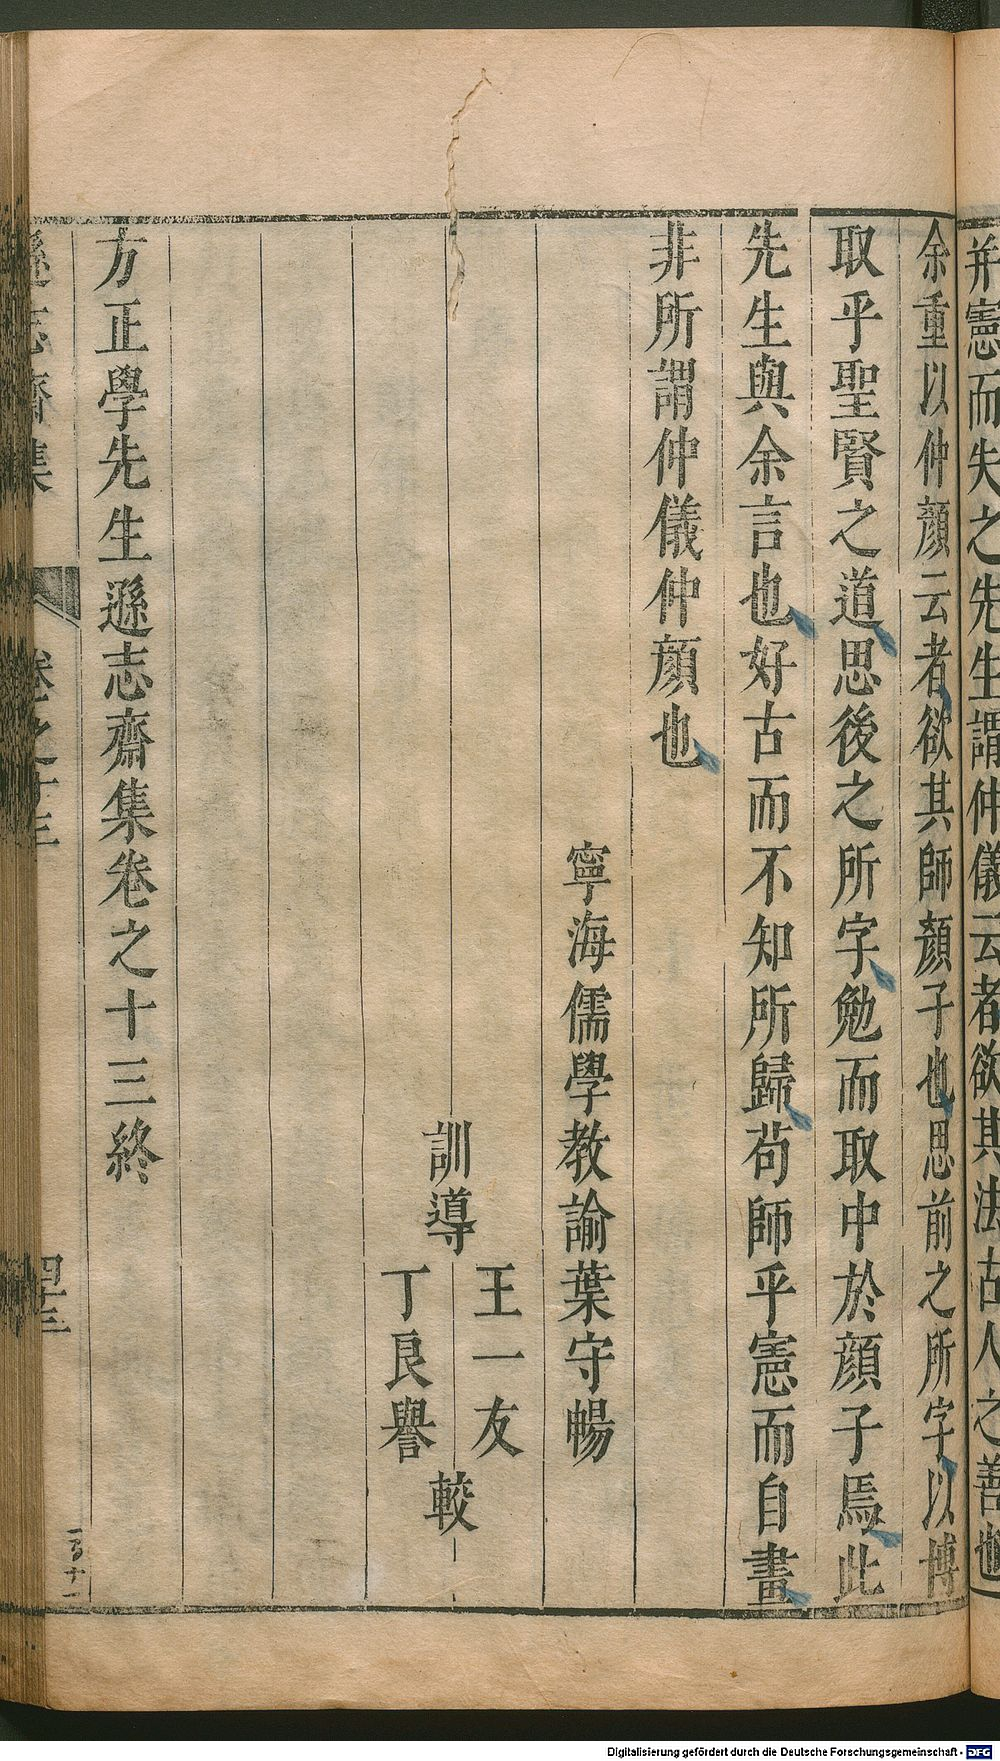 并憲而失之先生謂仲儀云者欲其法古人之善也
余重以仲顏云者欲其師顏子也思前之所字以博
取乎聖賢之道思後之所字勉而取中於顏子焉此
先生與余言也好古而不知所歸苟師乎憲而自畫
非所謂仲儀仲顏也
寧海儒學教諭葉守暢
訓導
王一友
丁良譽
較
方正學先生遜志齋集卷之十三終
遜志齋集 卷之十三 四十三
Digitalisierung gefördert durch die Deutsche Forschungsgemeinschaft - DFG